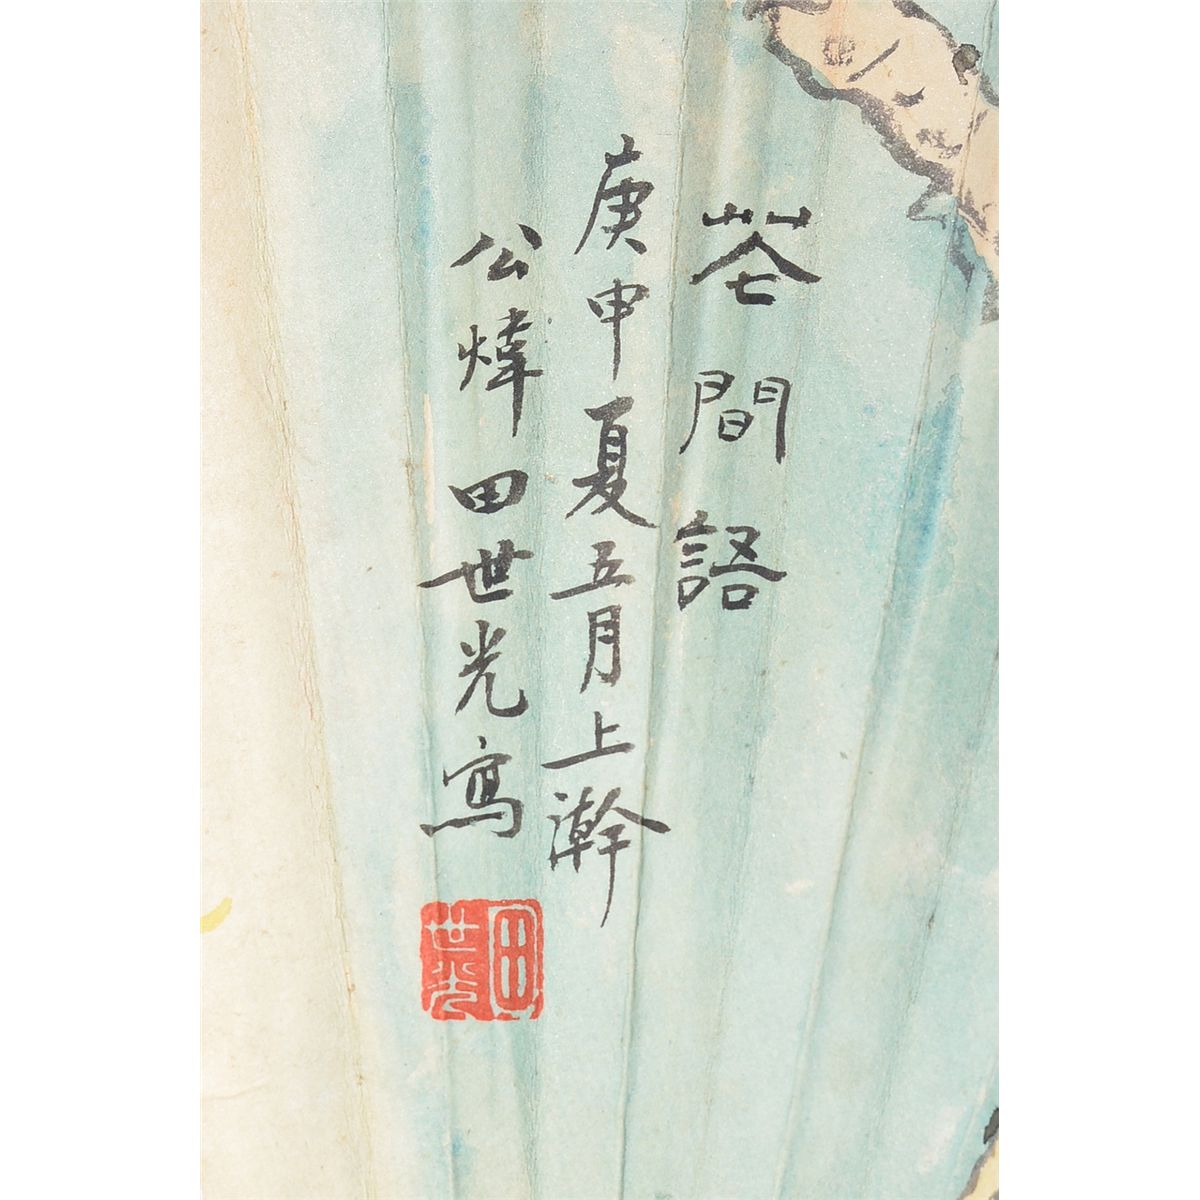 花間語
庚申夏五月上澣
公煒田世光寫
田世光